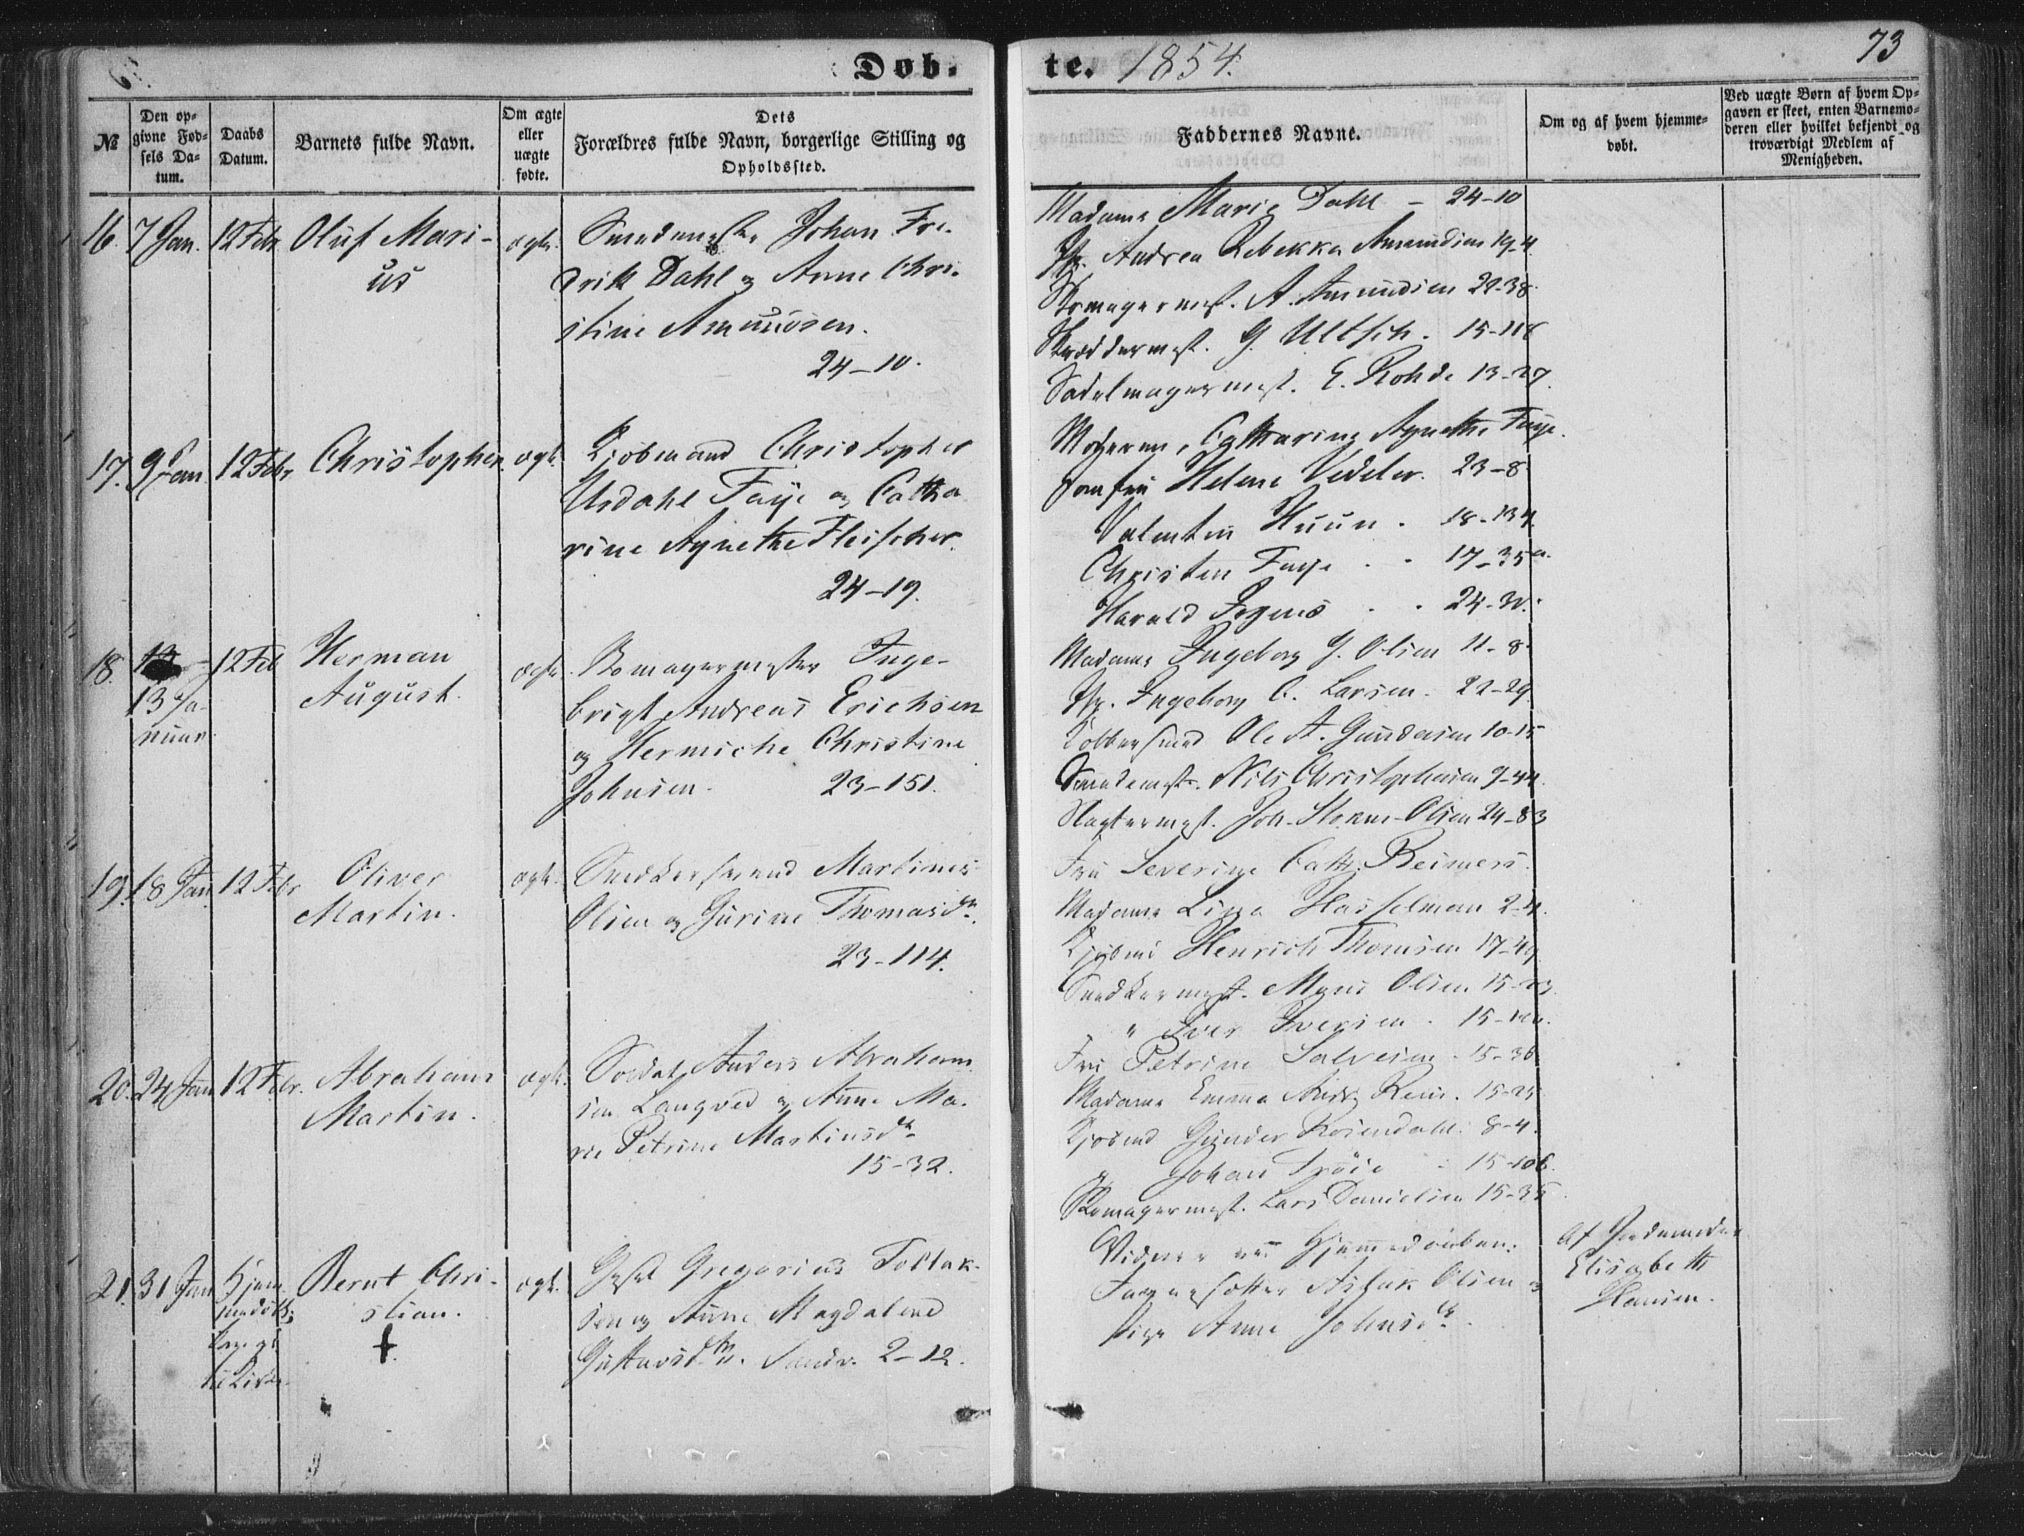 Døb.
te. 1854.
73
№
Den op-
givne Fød-
sels Da-
tum.
Daabs
Datum.
Barnets fulde Navn.
Om ægte
eller
uægte
fødte.
Dets
Forældres fulde Navn, borgerlige Stilling og
Opholdssted.
Faddernes Navne.
Om og af hvem hjemme-
døbt.
Ved uægte Børn af hvem Op-
gaven er skeet, enten Barnemo-
deren eller hvilket bekjendt og
troværdigt Medlem af
Menigheden.
16. 7 Jan. 12 Febr Oluf Mari-
us
ægte.
Smedmester Johan Fre-
drik Dahl og Anne Chri-
stine Amundsen.
24-10.
Madame Marie Dahl - 24-10
Pg. Andrea Rebekka Amundsen 19-4
Skomagermest. A. Amundsen 22-38.
Skræddermest. G. Ultsch. 15-116
Sadelmagermest. E. Rohde 13-27.
17. 9 Jan 12 Febr Christopher
ægte.
Kjøbmand Christopher
Usdahl Faye og Catha
rine Agnethe Fleischer.
24-19.
Moderen, Catharine Agnethe Faye.
Jomfru Helene Vedeler. 23-8
Valentin Huun. 18-134.
Christen Faye . . 17-35a.
Harald . . 24-
18. 13 Ja-
nuar
12 Feb
Herman
August.
ægte.
Skomagermester Inge-
brigt Andreas Erichsen
og Hermiche Christine
Johnsen. 23-151.
Madame Ingeborg G. Olsen 11-8
Pg. Ingeborg C. Larsen. 22-29
Kobbersmed Ole A. Gundersen 10-15
Smedemest. Nils Christophersen 9-44.
Slagtermest. Joh. Olsen 24-83
19. 18 Jan 12 Febr Oliver
Martin.
ægte.
Snedkersvend Martinus
Olsen og Gurine Thomasdtr.
23-114.
Fru Severine Cath. Reimers.
Madame Lina Hasselman 2-4.
Kjøbmd Henrich Thomsen 17-49
Snedkermest. Mons Olsen 15-23.
" Iver Iversen . 15-
20. 24 Jan 12 Febr. Abraham
Martin.
ægte.
Soldat Anders Abraham
sen Langved og Anne Ma-
rie Petrine Martinsdr
15-32.
Fru Petrine Salvesen . 15-36
Madame Emma 15-25
Kjøbmd Gunder Rosendahl. 8-4.
Johan Trøie - 15-106.
Skomagermest. Lars Danielsen 15-35.
21. 31 Jan Hjem-
medøbt
Bernt Chri-
stian.
†.
ægte.
Gregorius Tollak-
sen og Anne Magdalene
Gustavsdtr. Sandv. 2-12.
Vidner ved Hjemmedaaben:
Aslak Olsen og
Pige Anne Johnsdr.
Af Jordemoder
Elisabeth
Hansen.